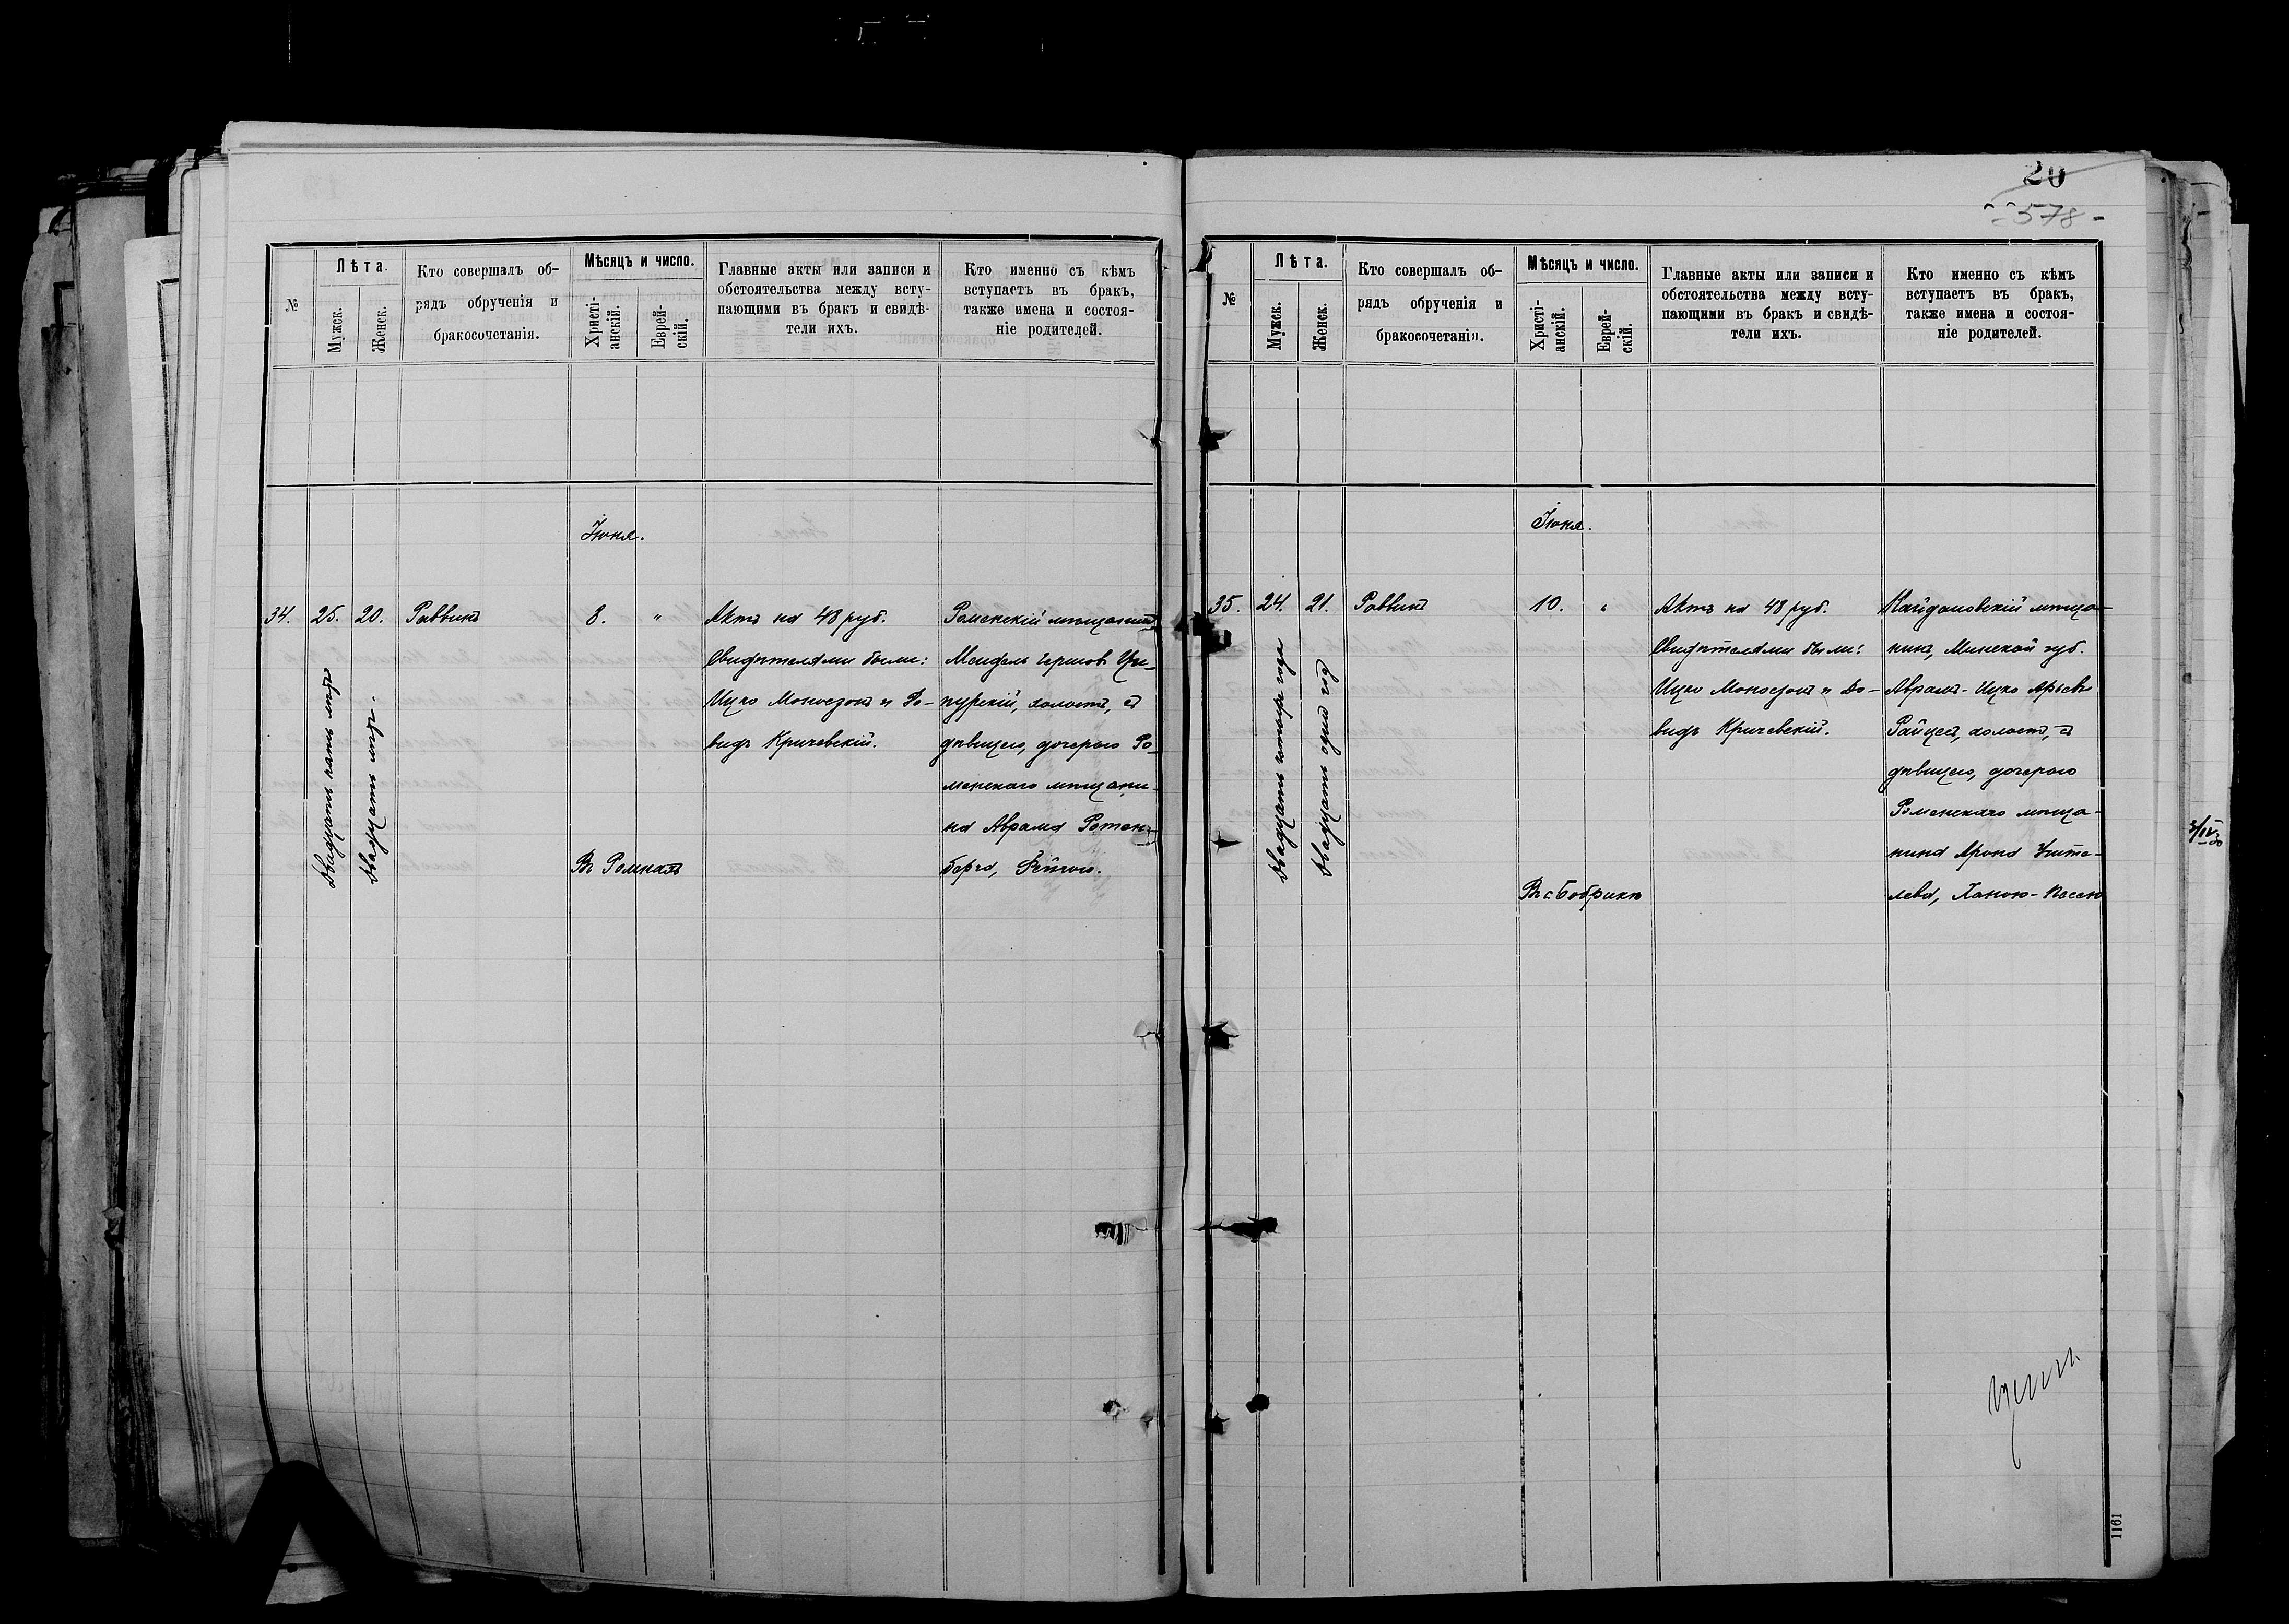 №
Лѣта.
Мужск.
Женск.
Кто совершалъ об-
рядъ обрученія и
бракосочетанія.
Мѣсяцъ и число.
Христі-
анскій.
Еврей-
скій.
Главные акты или записи и
обстоятельства между всту-
пающими въ бракъ и свидѣ-
тели ихъ.
Кто именно съ кѣмъ
вступаетъ въ бракъ,
также имена и состоя-
ніе родителей.
Іюня.
34.
25.
Двадцать пять лѣтъ
20.
Двадцать лѣтъ.
Раввинъ
8.
"
Въ Ромнахъ
Актъ на 48 руб.
Свидѣтелями были:
Ицко Моносзонъ и До-
видъ Кричевскій.
Роменскій мѣщанинъ
Мендель Гершовъ
пурскій, холостъ, съ
дѣвицею, дочерью Ро-
менскаго мѣщани-
на Аврама Ротен-
берга, Фейгою.
20
578-
№
Лѣта.
Мужск.
Женск.
Кто совершалъ об-
рядъ обрученія и
бракосочетанія.
Мѣсяцъ и число.
Христі-
анскій.
Еврей-
скій.
Главные акты или записи и
обстоятельства между всту-
пающими въ бракъ и свидѣ-
тели ихъ.
Кто именно съ кѣмъ
вступаетъ въ бракъ,
также имена и состоя-
ніе родителей.
Іюня.
35.
24.
Двадцать четыре года
21.
Двадцать одинъ годъ
Раввинъ
10.
"
Въ с. Бобрикѣ
Актъ на 48 руб.
Свидѣтелями были:
Ицко Моносзонъ и До-
видъ Кричевскій.
Кайдановскій мѣща-
нинъ, Минской губ.
Аврамъ-Ицко Арьевъ
Райцесъ, холостъ, съ
дѣвицею, дочерью
Роменскаго мѣща-
нина Арона Учите-
лева, Ханою-Песею
1161